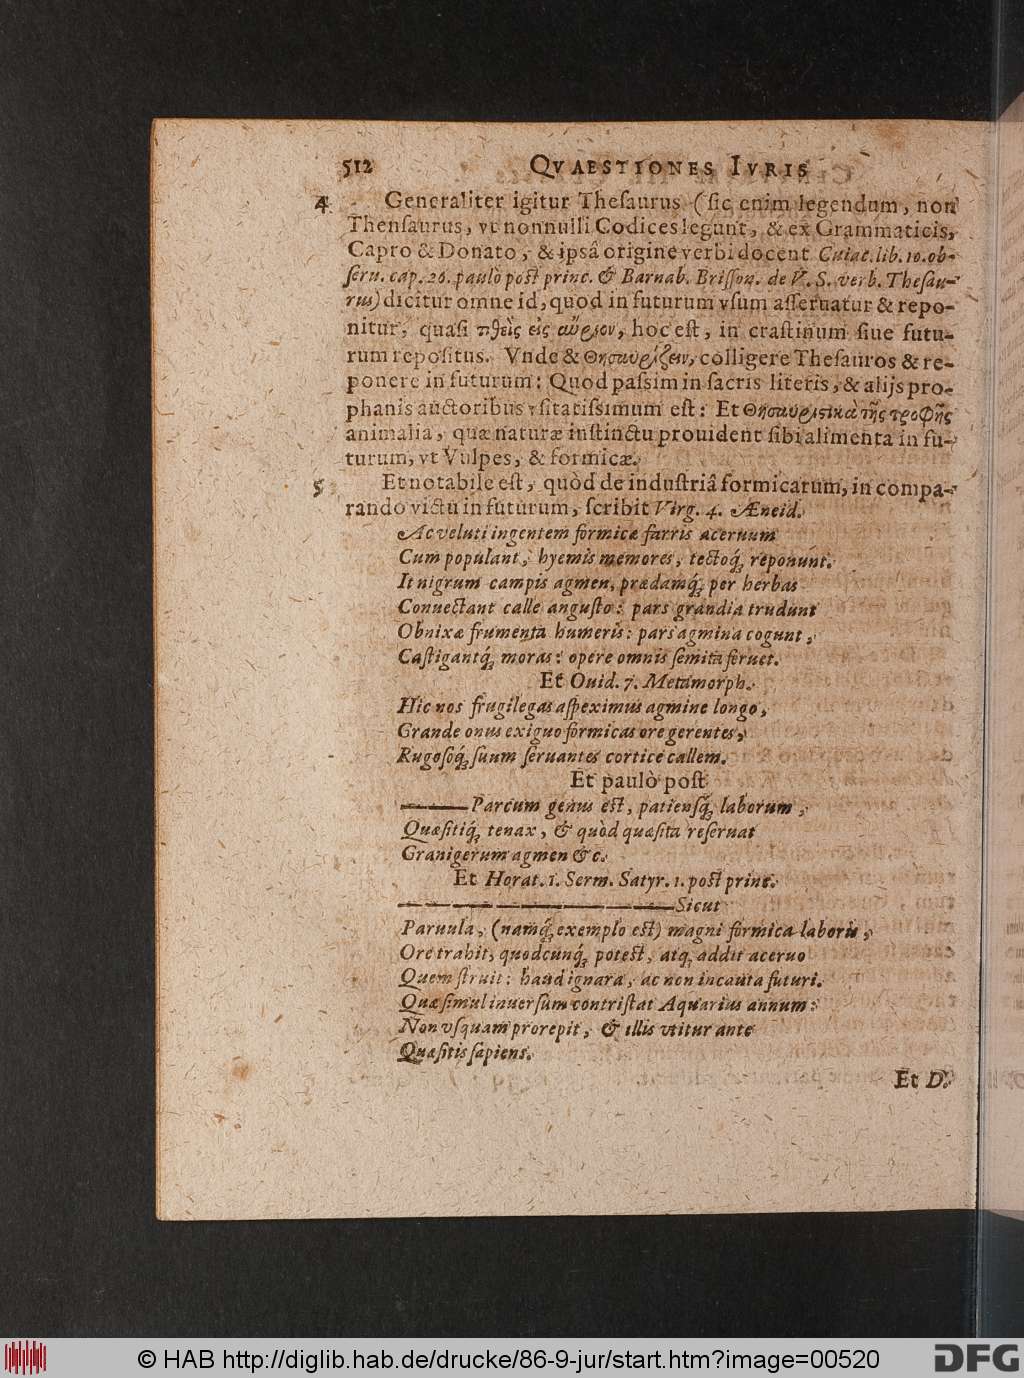 512 QVAESTIONES IVRIS
4 Generaliter igitur Theſaurus (ſic enim legendum, non
Thenſaurus, vt nonnulli Codices legunt, & ex Grammaticis,
Capro & Donato, & ipsâ origine verbi docent Cuiac. lib. 10. ob-
ſeru. cap. 26. paulò post princ. & Barnab. Briſſon. de V. S. verb. Theſau-
rus) dicitur omne id, quod in futurum vſum aſſeruatur & repo-
nitur, quaſi τιθεὶς εἰς αὔριον, hoc eſt, in craſtinum ſiue futu-
rum repoſitus. Vnde & Θησαυρίζειν, colligere Theſauros & re-
ponere in futurum: Quod paſsim in ſacris literis, & alijs pro-
phanis auctoribus vſitatiſsimum eſt: Et Θησαυριστικὰ τῆς τροφῆς
animalia, quæ naturæ inſtinctu prouident ſibi alimenta in fu-
turum, vt Vulpes, & formicæ.
5 Et notabile eſt, quòd de induſtriâ formicarum, in compa-
rando victu in futurum, ſcribit Virg. 4. Æneid.
Ac veluti ingentem formicæ farris aceruum
Cum populant, hyemis memores, tectoq́; reponunt.
It nigrum campis agmen, prædamq́; per herbas
Conuectant calle anguſto: pars grandia trudunt
Obnixæ frumenta humeris: pars agmina cogunt,
Caſtigantq́; moras: opere omnis ſemita feruet.
Et Ouid. 7. Metamorph.
Hic nos frugilegas aſpeximus agmine longo,
Grande onus exiguo formicas ore gerentes,
Rugoſoq́; ſuum ſeruantes cortice callem.
Et paulò poſt
——— Parcum genus est, patienſq́; laborum,
Quæſitiq́; tenax, & quòd quæſita reſeruat
Granigerum agmen &c.
Et Horat. 1. Serm. Satyr. 1. post princ.
———————————— Sicut
Paruula, (namq́; exemplo est) magni formica laboris,
Ore trahit, quodcunq́; potest, atq; addit aceruo
Quem ſtruit: haud ignara, ac non incauta futuri.
Quæ ſimul inuerſum contriſtat Aquarius annum:
Non vſquam prorepit, & illis vtitur ante
Quæſitis ſapiens.
Et D.
© HAB http://diglib.hab.de/drucke/86-9-jur/start.htm?image=00520
DFG